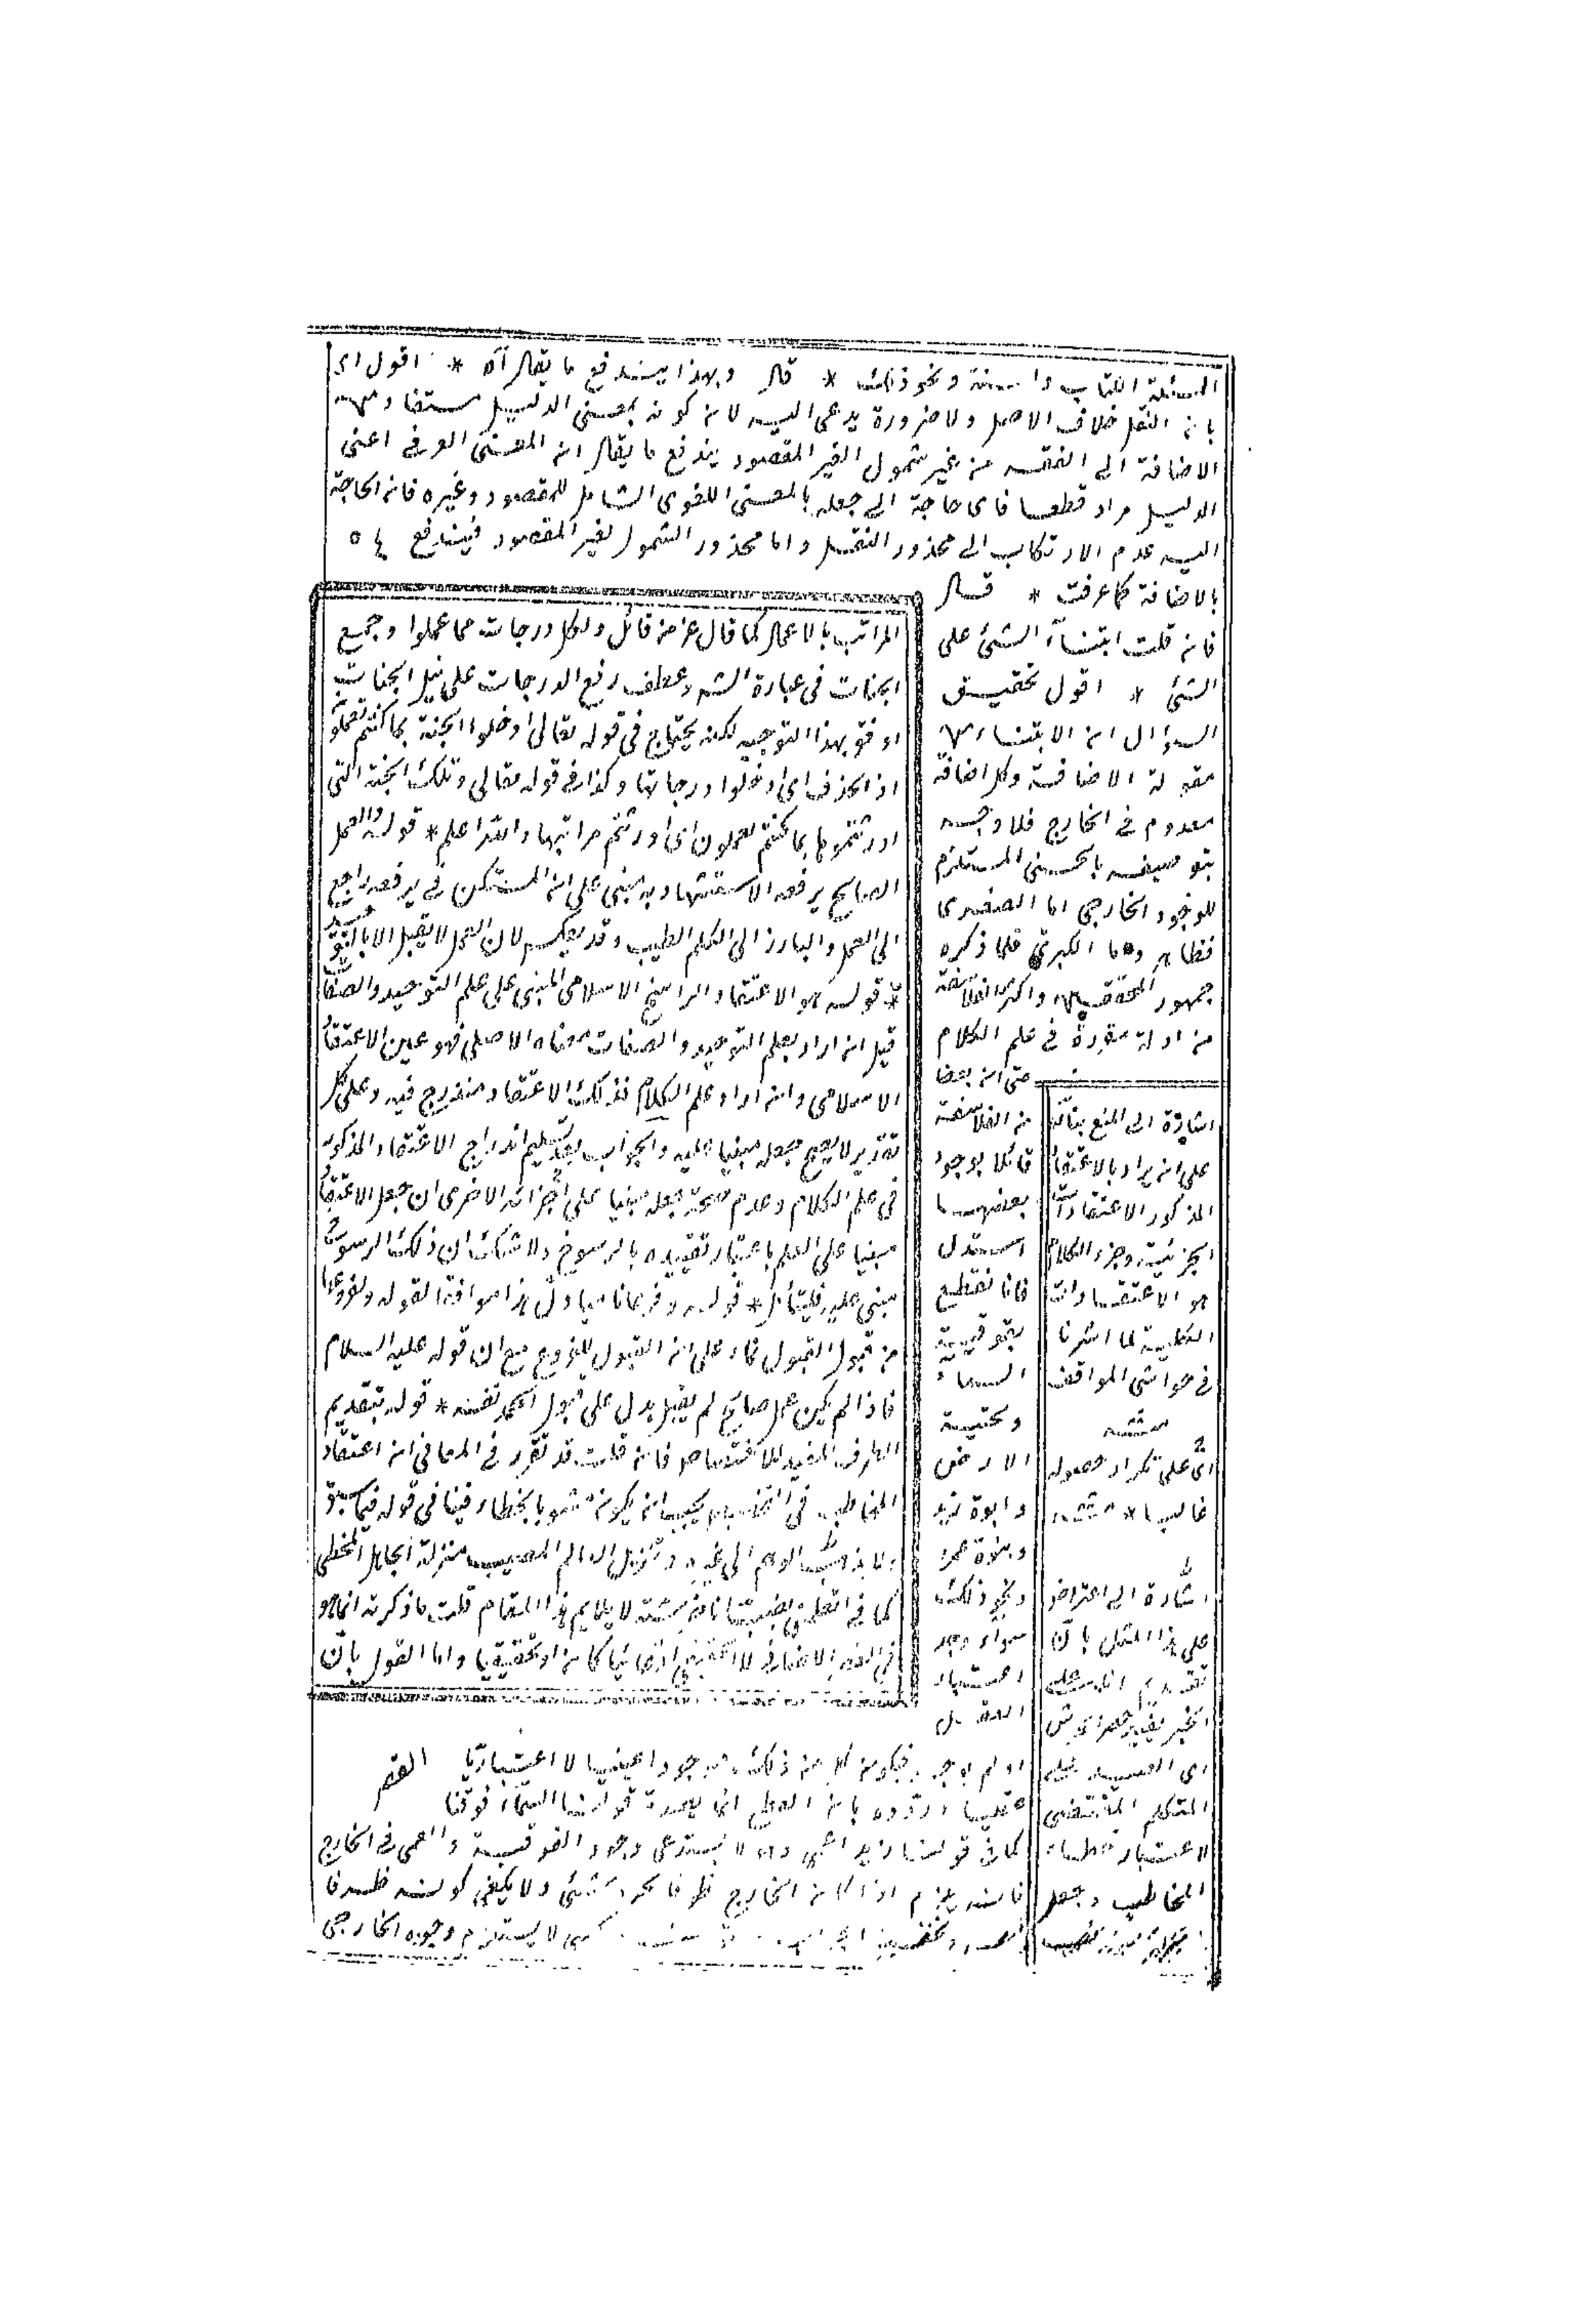 المسئلة الكتاب والسنة ونحو ذلك * قال وبهذا يندفع ما يقال آه * اقول اى
بان النقل خلاف الاصل ولا ضرورة يدعى اليه لان كونه بمعنى الدليل مستفاد من
الاضافة الى الفقه من غير شمول الغير المقصود يندفع ما يقال ان المعنى العرفى اعنى
الدليل مراد قطعا فاى حاجة الى جعله بالمعنى اللغوى الشامل للمقصود وغيره فان الحاجة
اليه عدم الارتكاب الى محذور النقل واما محذور الشمول لغير المقصود فيندفع
بالاضافة كما عرفت * قال
فان قلت ابتناء الشئ على
الشئ * اقول تحقيق
السؤال ان الابتناء من
مقولة الاضافة وكل اضافة
معدوم فى الخارج فلا وجه
بتوصيف بالحسى المستلزم
للوجود الخارجى اما الصغرى
فظاهر واما الكبرى فلما ذكره
جمهور المحققين واكثر الفلاسفة
من ادلة مقررة فى علم الكلام
حتى ان بعضا
من الفلاسفة
قائلا بوجود
بعضها
استدل
فانا نقطع
بفوقية
السماء
وتحتية
الارض
وابوة زيد
وبنوة عمرو
ونحو ذلك
سواء وجد
اعتبار
العقل
او لم يوجد فيكون كل من ذلك موجودا عينيا لا اعتباريا
عقليا وردوه بان القطع انما بصدق قولنا السماء فوقنا
كما فى قولنا زيد اعمى وهو لا يستدعى وجود الفوقية والعمى فى الخارج
فانه يلزم اذا كان الخارج ظرفا ولا يكفى كونه ظرفا
لا يستلزم وجوده الخارجى
المراتب بالاعمال كما قال عز من قائل ولكل درجات مما عملوا وجميع
الجنات فى عبارة الشه وعطف رفع الدرجات على نيل الجنات
اوفق بهذا التوجيه لكنه يحتاج فى قوله تعالى ادخلوا الجنة بما كنتم تعملون
اذ الحذف اى ادخلوا درجاتها وكذا فى قوله تعالى وتلك الجنة التى
اورثتموها بما كنتم تعملون اى اورثتم مراتبها والله اعلم * قوله والعمل
الصالح يرفعه الاستشهاد به مبنى على ان المستكن فى يرفعه راجع
الى العمل والبارز الى الكلم الطيب وقد يعكس لان العمل لا يقبل الا بالتوحيد
* قوله هو الاعتقاد الراسخ الاسلامى المبنى على علم التوحيد والصفات
قيل ان اراد بعلم التوحيد والصفات معناه الاصلى فهو عين الاعتقاد
الاسلامى وان اراد علم الكلام فذلك الاعتقاد مندرج فيه وعلى كل
تقدير لا يصح جعله مبنيا عليه والجواب بعد تسليم اندراج الاعتقاد المذكور
فى علم الكلام وعدم صحة جعله مبنيا على اجزائه الاخرى ان جعل الاعتقاد
مبنيا على العلم باعتبار تقييده بالرسوخ ولا شك ان ذلك الرسوخ
مبنى عليه فليتأمل * قوله وفرعانا ميا دل هذا موافقة لقوله ولفروعها
من قبول القبول نماء على ان القبول للفروع مع ان قوله عليه السلام
فاذا لم يكن عمل صالح لم يقبل يدل على قبول الحمد نفسه * قوله بتقديم
الظرف المفيد للاختصاص فان قلت قد تقرر فى المعانى ان اعتقاد
المخاطب فى التخصيص يجب ان يكون مشوبا بخطاء فينافى قوله فيما سبق
ولا يذهب الوهم الى غيره وتنزيل العالم المصيب منزلة الجاهل المخطى
كما فى لا يلايم هذا المقام قلت ما ذكرته انما هو
فى القصر الاضافى لا الحقيقى ادعائيا كان او تحقيقيا واما القول بان
اشارة الى المنع بناء
على ان يراد بالاعتقاد
المذكور الاعتقادات
الجزئية وجزء الكلام
هو الاعتقادات
الكلية لما اشرنا
فى حواشى المواقف
منه
اى على تكرار حصوله
غالبا * منه
اشارة الى اعتراض
على هذا القائل بان
تقديم المسند على
المتكلم المقتضى
لاعتبار خطاء
المخاطب وجعل